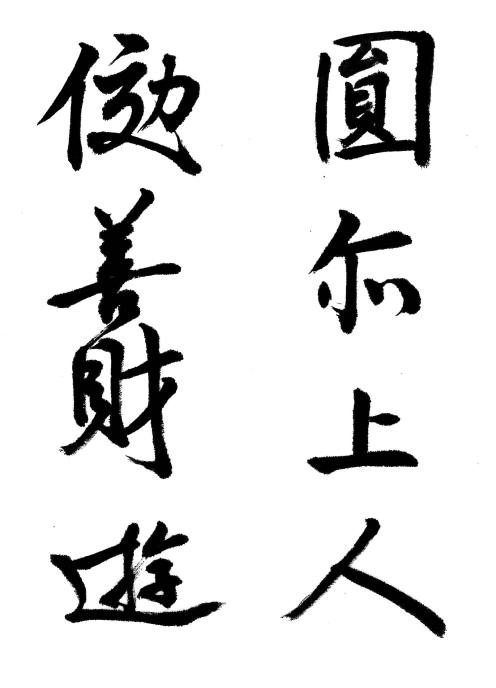 圓尔上人
傚善財遊